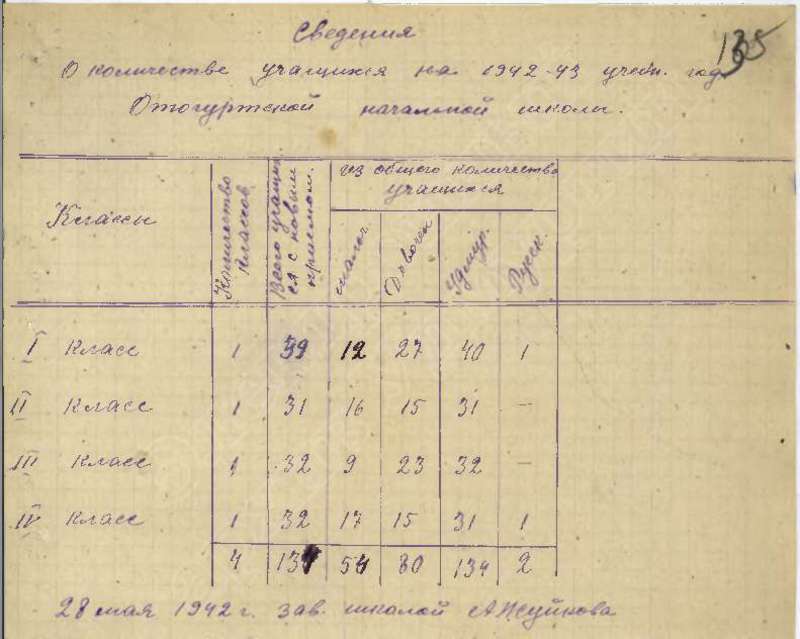 135
Сведения
О количестве учащихся на 1942-43 учебн. год
Отогуртской начальной школы.
Классы
Количество классов
Всего учащихся с новым приемом.
из общего количества
учащихся
мальч.
Девочек
Удмур.
Русск.
I класс 1 39 12 27 40 1
II класс 1 31 16 15 31 —
III класс 1 32 9 23 32 —
IV класс 1 32 17 15 31 1
4 134 54 80 134 2
28 мая 1942 г. Зав. школой А Жуйкова